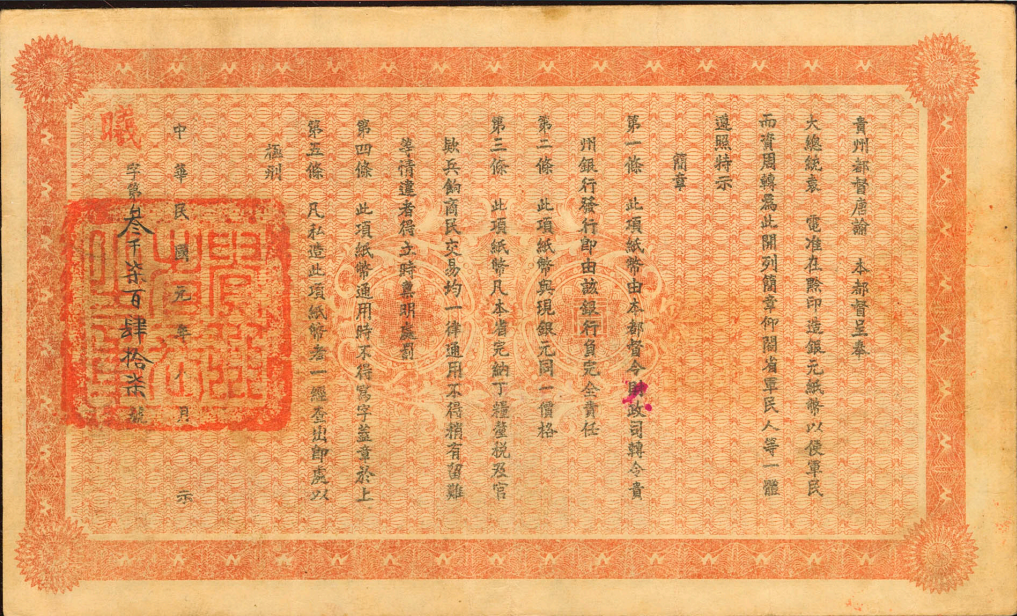 貴州都督唐諭　本都督呈奉
大總統袁　電准在黔印造銀元紙幣以便軍民
而資周轉爲此開列簡章仰闔省軍民人等一體
遵照特示
簡章
第一條　此項紙幣由本都督令財政司轉令貴
州銀行發行卽由該銀行負完全責任
第二條　此項紙幣與現銀元同一價格
第三條　此項紙幣凡本省完納丁糧釐稅及官
欵兵餉商民交易均一律通用不得稍有留難
等情違者得立時稟明嚴罰
第四條　此項紙幣通用時不得寫字蓋章於上
第五條　凡私造此項紙幣者一經查出卽處以
極刑
中華民國元年　月　示
字第叁千柒百肆拾柒號
曦